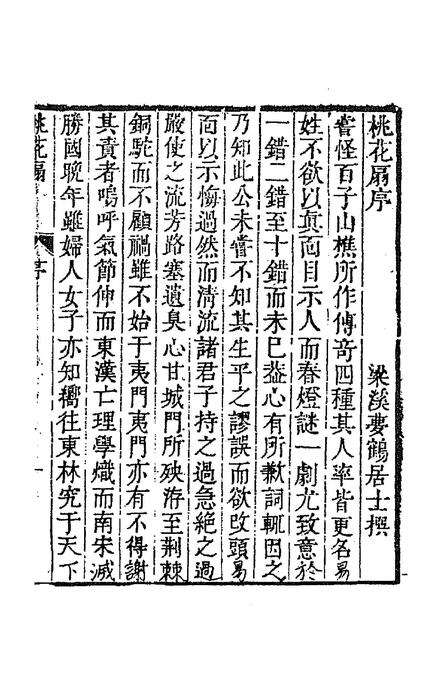 桃花扇序
梁溪夢鶴居士撰
嘗怪百子山樵所作傳竒四種其人率皆更名易
姓不欲以真靣目示人而春燈謎一劇尤致意於
一錯二錯至十錯而未巳葢心有所歉詞輒因之
乃知此公未嘗不知其生平之謬誤而欲改頭易
靣以示悔過然而清流諸君子持之過急絶之過
嚴使之流芳路塞遺臭心甘城門所殃洊至荆棘
銅駝而不顧禍雖不始于夷門夷門亦有不得謝
其責者嗚呼氣節伸而東漢亡理學熾而南宋滅
勝國晩年雖婦人女子亦知嚮往東林究于天下
桃花扇
序